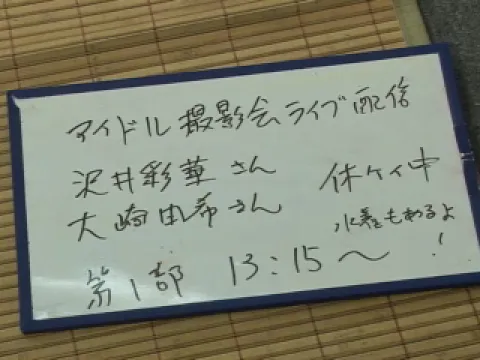 アイドル撮影会ライブ配信
沢井彩華さん
大崎由希さん
休ケイ中
水着もあるよ!
第1部 13:15〜